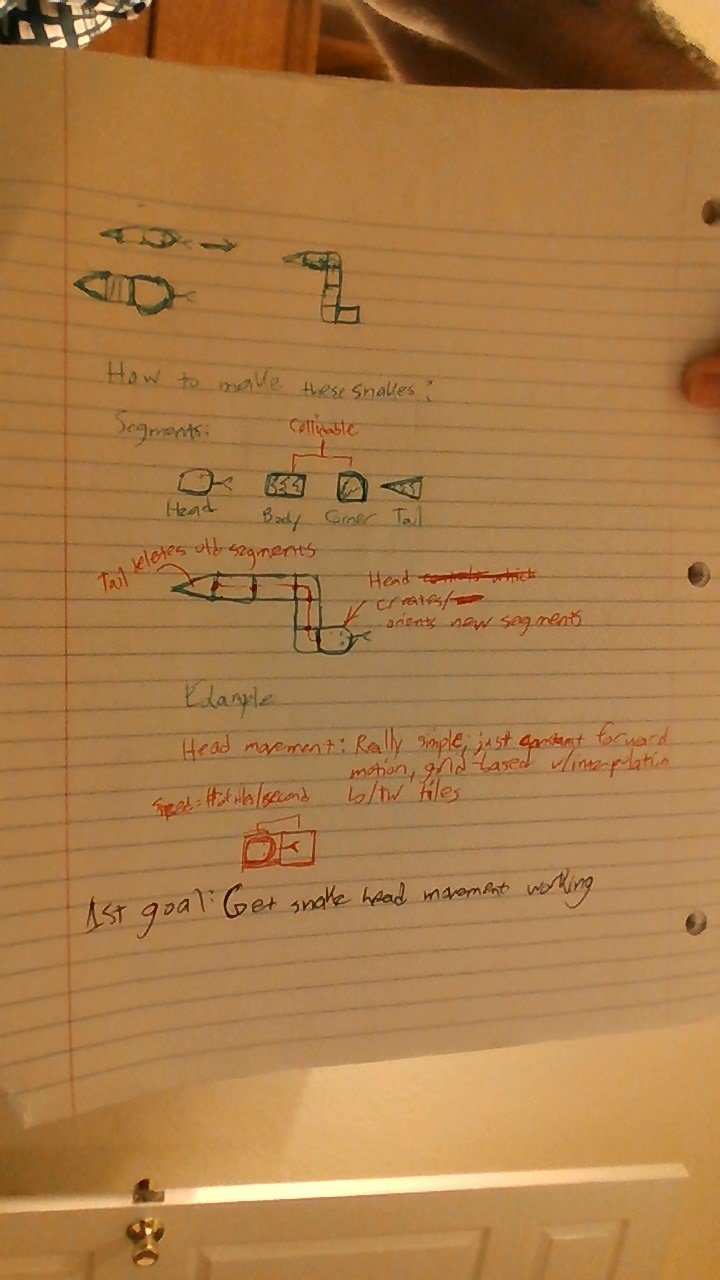 How to make these snakes:
Segments:
Collidable
Head Body Corner Tail
Tail deletes old segments
Head controls which
creates/
orients new segments
Example
Head movement: Really simple, just constant forward
motion, grid based w/interpolation
Speed = # of tiles/second b/tw tiles
1st goal: Get snake head movement working